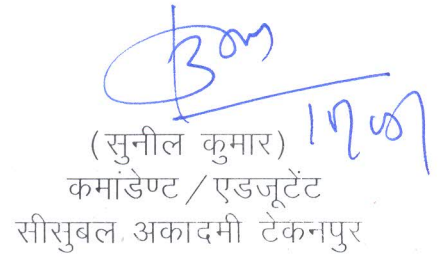 (सुनील कुमार)
कमांडेण्ट / एडजूटेंट
सीसुबल अकादमी टेकनपुर